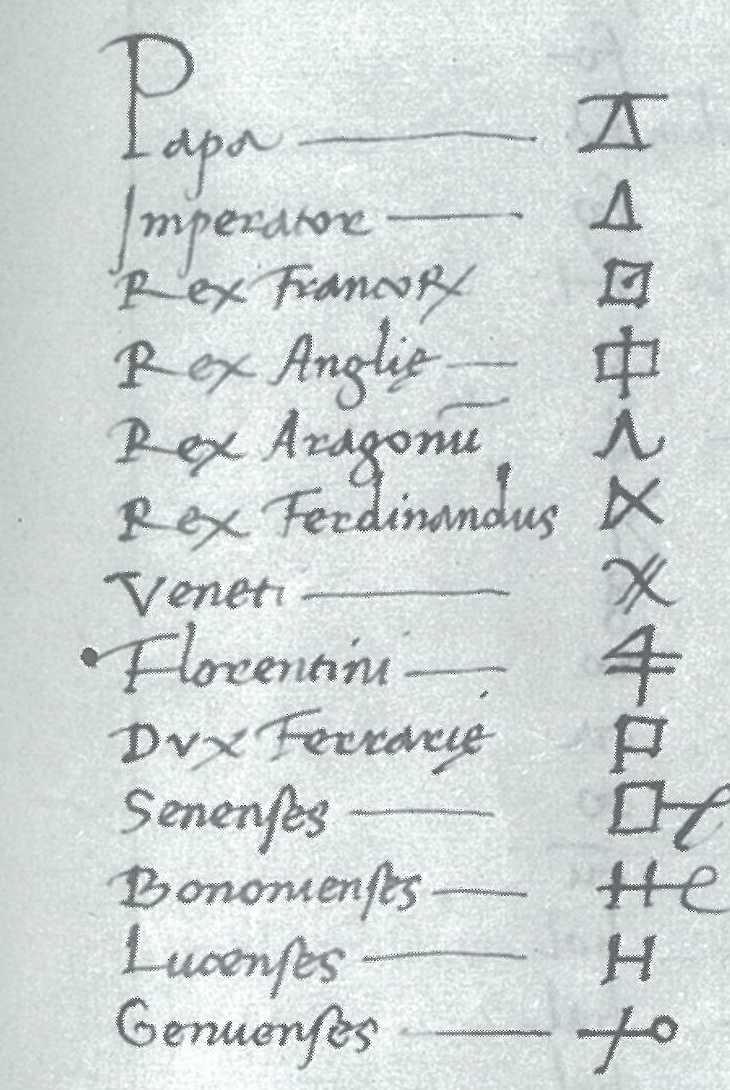 Papa
Imperator
Rex Francorꝝ
Rex Anglię
Rex Aragonū
Rex Ferdinandus
Veneti
Florentini
Dvx Ferrarię
Senenſes
Bononienſes
Lucenſes
Genuenſes